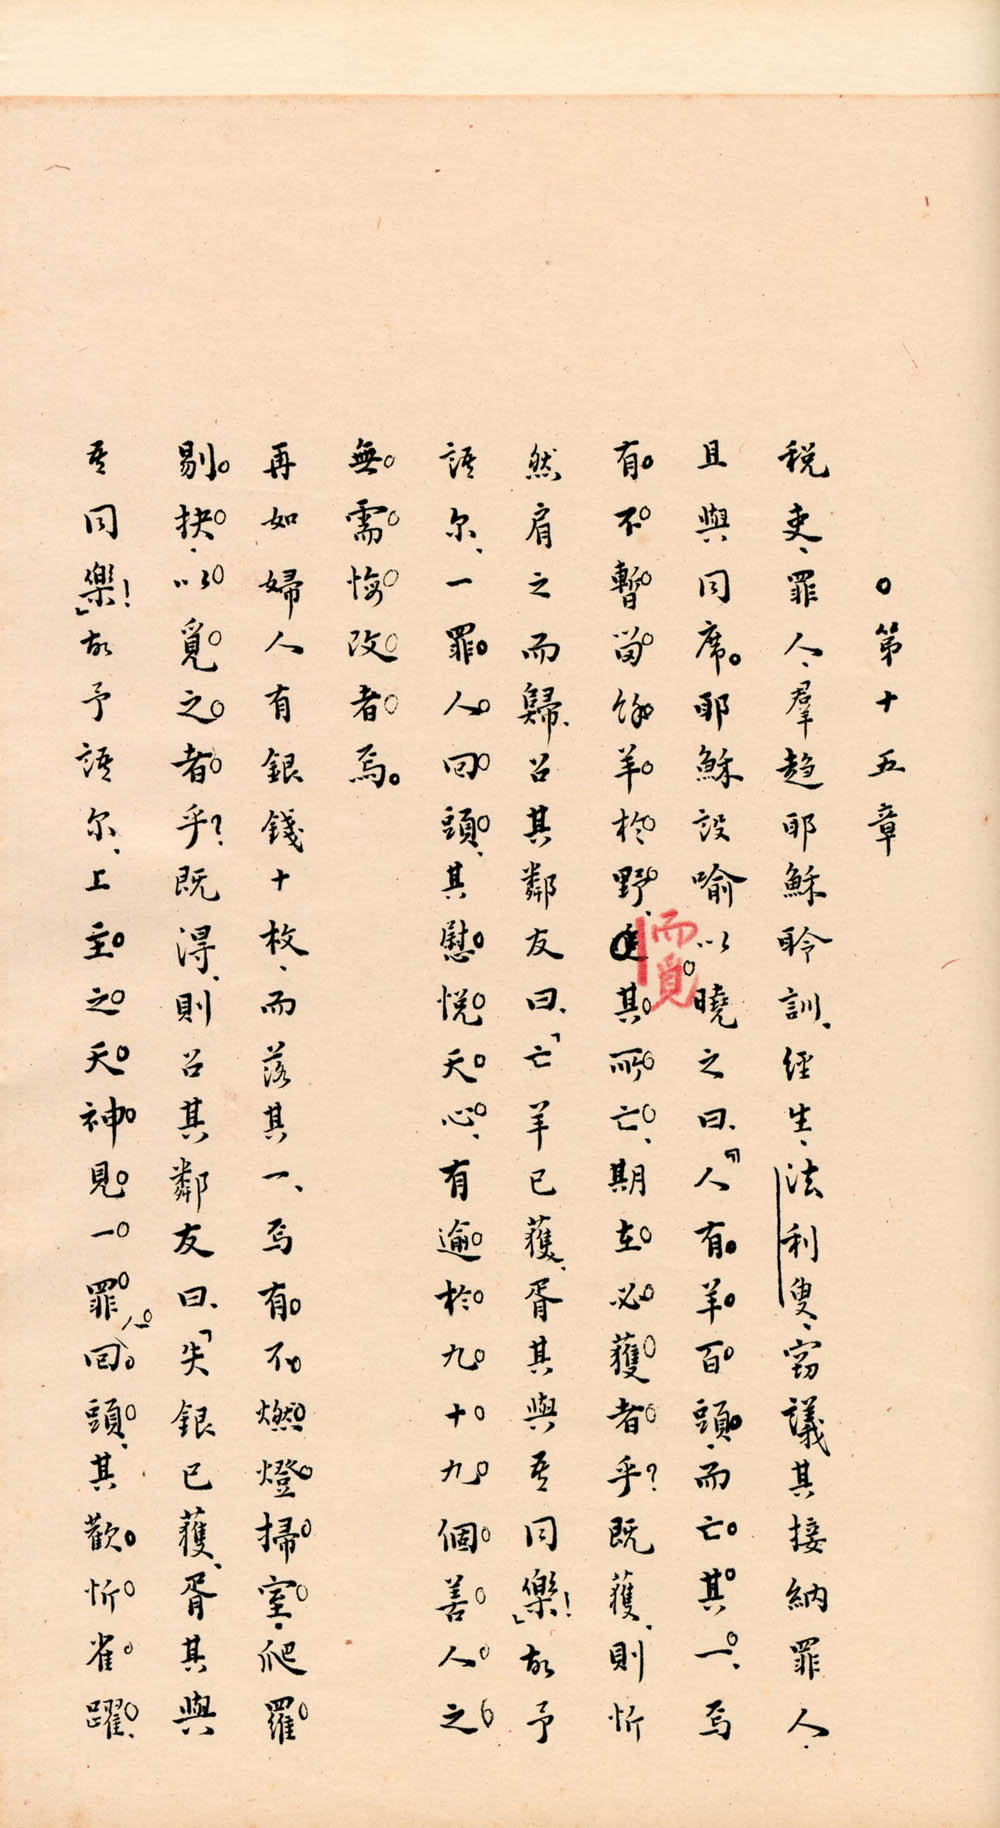 ○第十五章
稅吏、罪人、羣趨耶穌聆訓、經生、法利叟、竊議其接納罪人、
且與同席。耶穌設喻以曉之曰、『人有羊百頭、而亡其一、焉
有不暫留餘羊於野、而覓其所亡、期在必獲者乎?既獲、則忻
然肩之而歸、召其鄰友曰、「亡羊已獲、胥其與吾同樂!」故予
語尔、一罪人回頭、其慰悅天心、有逾於九十九個善人之
無需悔改者焉。
再如婦人有銀錢十枚、而落其一、焉有不燃燈掃室、爬羅
剔抉、以覓之者乎?既得、則召其鄰友曰、「失銀已獲、胥其與
吾同樂!」故予語尔、上主之天神見一罪人回頭、其歡忻雀躍、